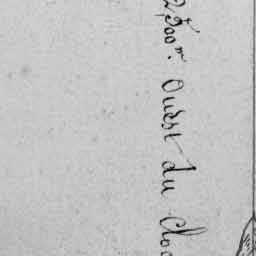 2,500m. Ouest du Cloc